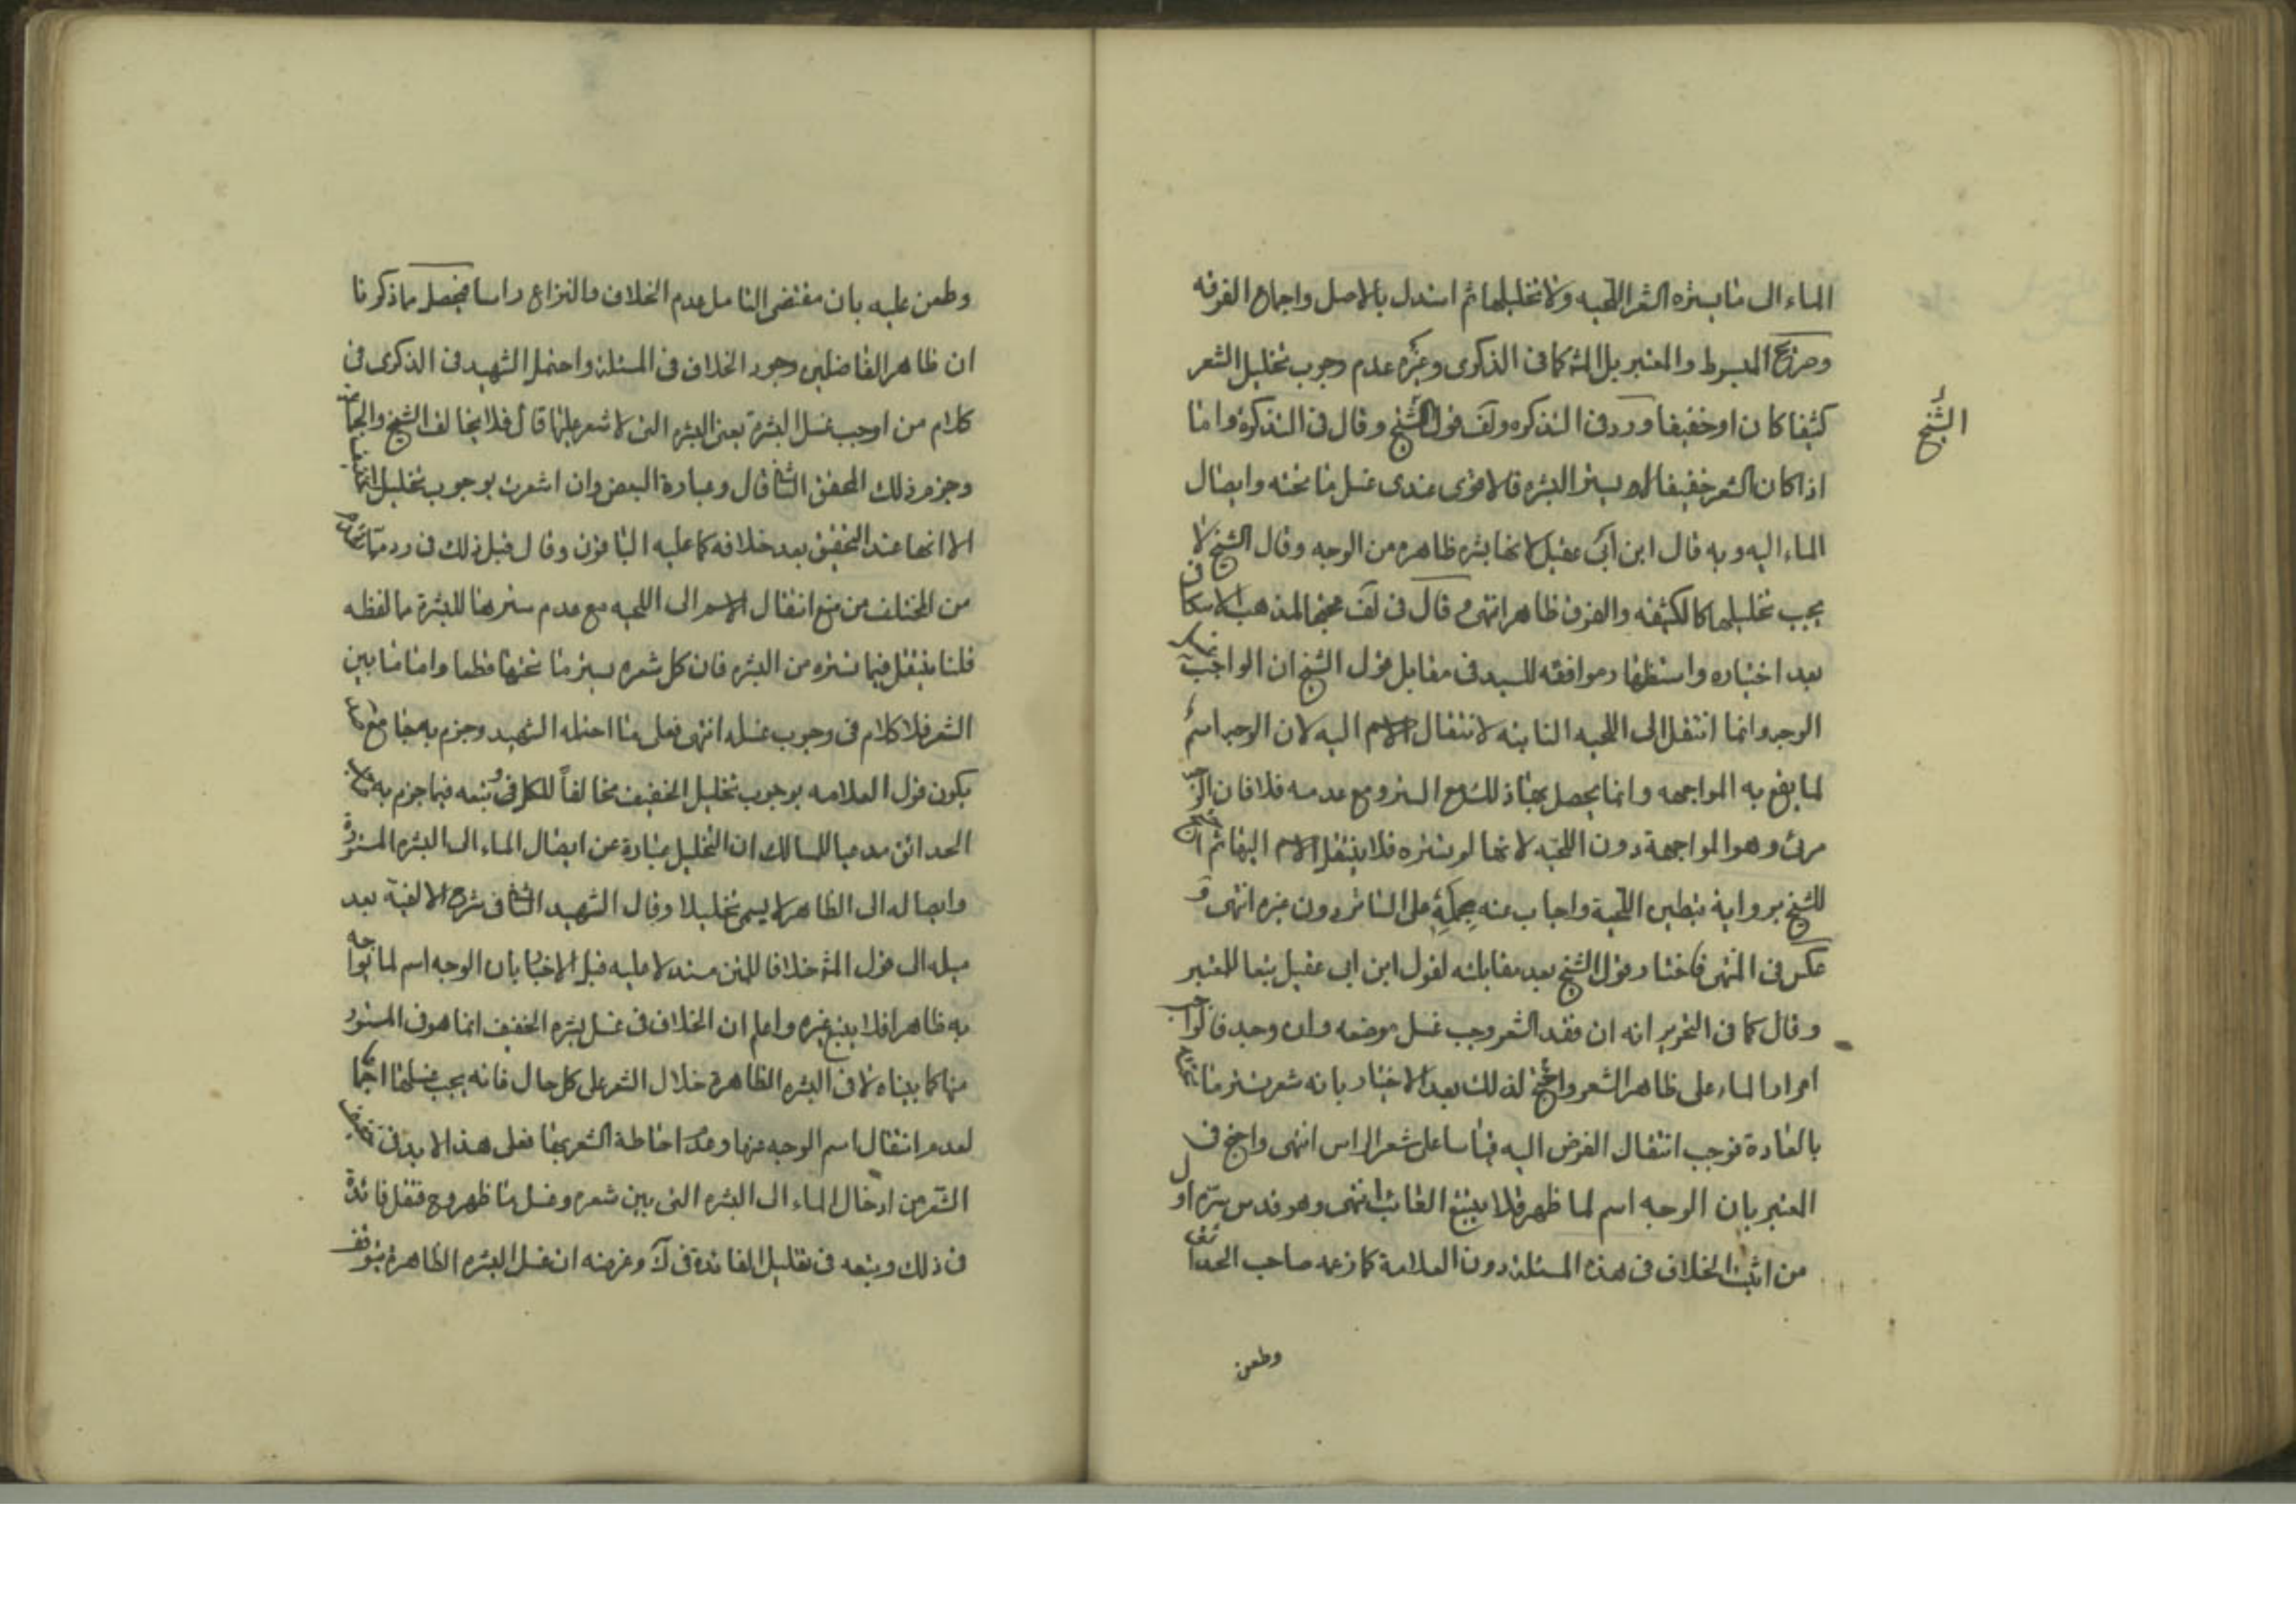 الماء الى ما يستره الشعر اللحيه ولا تخليلها ثم استدل بالاصل واجماع الفرقه
وصرح المبسوط والمعتبر بل المشه كما فى الذكرى وغيره عدم وجوب تخليل الشعر
كثيفا كان او خفيفا ورد فى التذكره ولف قول الشيخ وقال فى التذكرة واما
الشيخ
اذا كان الشعر خفيفا لا يستر البشره فالاقوى عندى غسل ما تحته وايصال
الماء اليه وبه قال ابن ابى عقيل لانها بشره ظاهره من الوجه وقال الشيخ لا
يجب تخليلها كالكثيفه والفرق ظاهر انتهى وقال فى لف محتجا لمذهب الاسكافى
بعد اختياره واستظهار موافقه للسيد فى مقابل قول الشيخ ان الواجب
الوجه وانما انتقل الى اللحيه النابته لانتقال الاسم اليه لان الوجه اسم
لما يقع به المواجهه وانما يحصل بها ذلك مع الستر ومع عدمه فلا فان الوجه
مرئى وهو المواجهة دون اللحيه لانها لم تستره فلا ينتقل الاسم اليها ثم احتج
للشيخ برواية تبطين اللحية واجاب عنه بحمله على الساتر دون غيره انتهى و
عكس فى المنتهى فاختار قول الشيخ بعد مقابلته لقول ابن ابى عقيل تبعا للمعتبر
وقال كما فى التحرير انه ان فقد الشعر وجب غسل موضعه وان وجد فالواجب
امرار الماء على ظاهر الشعر واحتج لذلك بعد الاخبار بانه شعر يستر ما تحته
بالعادة فوجب انتقال الفرض اليه قياسا على شعر الراس انتهى واحتج فى
المعتبر بان الوجه اسم لما ظهر فلا يتبع الغائب انتهى وهو قدس سره اول
من اثبت الخلاف فى هذه المسئلة دون العلامة كما زعمه صاحب الحدائق
وطعن
وطعن عليه بان مقتضى التامل عدم الخلاف والنزاع راسا فيحصل مما ذكرنا
ان ظاهر الفاضلين وجود الخلاف فى المسئلة واحتمل الشهيد فى الذكرى فى
كلام من اوجب غسل البشرة يعنى البشره التى لا شعر عليها قال فلا يخالف الشيخ والجماعة
وجزم ذلك المحقق الثانى قال وعبارة البعض وان اشعرت بوجوب تخليل الخفيف
الا انها عند التحقيق بعد خلافه كما عليه الباقون وقال قبل ذلك فى رد ما تقدم
من المختلف من منع انتقال الاسم الى اللحيه مع عدم سترها للبشرة ما لفظه
قلنا ينتقل فيما تستره من البشره فان كل شعره يستر ما تحتها قطعا واما ما بين
الشعر فلا كلام فى وجوب غسله انتهى فعلى ما احتمله الشهيد وجزم به جامع
يكون قول العلامه بوجوب تخليل الخفيف مخالفاً للكل وتبعه فيما جزم به
الحدائق مدعيا للسالك ان التخليل عبارة عن ايصال الماء الى البشره المستورة
وايصاله الى الظاهر لا يسمى تخليلا وقال الشهيد الثانى فى شرح الالفية بعد
ميله الى قول المشه خلافا للمتن مستدلا عليه قبل الاخبار بان الوجه اسم لما يواجه
به ظاهرا فلا يتبع غيره واعلم ان الخلاف فى غسل بشره الخفيف انما هو فى المستور
منها كما بيناه لا فى البشره الظاهرة خلال الشعر على كل حال فانه يجب غسلها اجماعا
لعدم انتقال اسم الوجه عنها وعدم احاطة الشعر بها فعلى هذا لا بد فى تخفيف
الشعر من ادخال الماء الى البشره التى بين شعره وغسل ما ظهر وح فتقل فائدة
فى ذلك وتبعه فى تقليل الفائدة فى لك وغرضه ان غسل البشره الظاهرة يتوقف